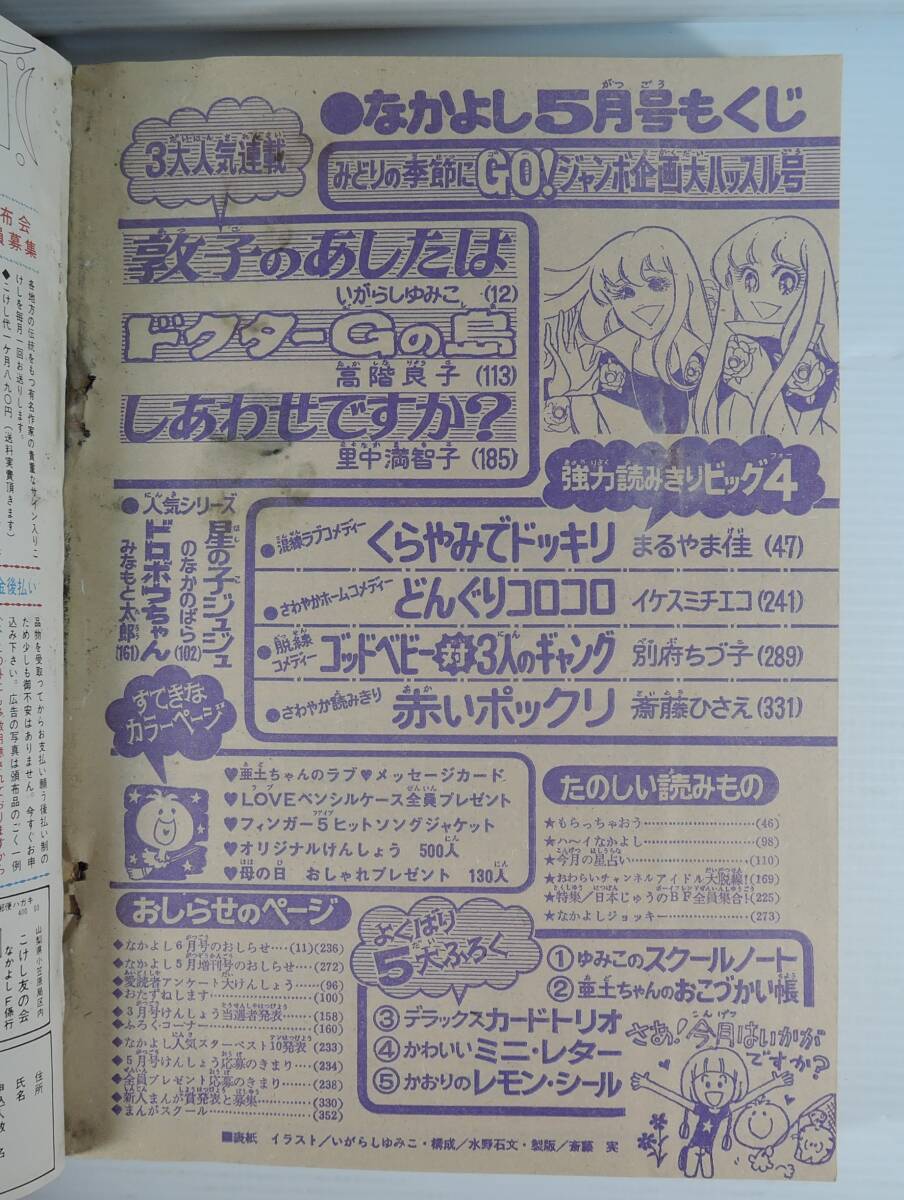 ●なかよし5月号もくじ
みどりの季節にGO!ジャンボ企画大ハッスル号
3大人気連載
敦子のあしたは
いがらしゆみこ (12)
ドクターGの島
高階良子 (113)
しあわせですか?
里中満智子 (185)
強力読みきりビッグ4
●混線ラブコメディー くらやみでドッキリ まるやま佳 (47)
●さわやかホームコメディー どんぐりコロコロ イケスミチエコ (241)
●脱線コメディー ゴッドベビー対3人のギャング 別府ちづ子 (289)
●さわやか読みきり 赤いポックリ 斎藤ひさえ (331)
●人気シリーズ
星の子ジュジュ
のなかのばら (102)
ドロボウちゃん
みなもと太郎 (161)
すてきなカラーページ
♥亜土ちゃんのラブ♥メッセージカード
♥LOVEペンシルケース全員プレゼント
♥フィンガー5ヒットソングジャケット
♥オリジナルけんしょう 500人
♥母の日 おしゃれプレゼント 130人
たのしい読みもの
★もらっちゃおう (46)
★ハ〜イなかよし (98)
★今月の星占い (110)
★おわらいチャンネルアイドル大脱線! (169)
★特集/日本じゅうのBF全員集合! (225)
★なかよしジョッキー (273)
おしらせのページ
◆なかよし6月号のおしらせ (11)(236)
◆なかよし5月増刊号のおしらせ (272)
◆愛読者アンケート大けんしょう (96)
◆おたずねします (100)
◆3月号けんしょう当選者発表 (158)
◆ふろくコーナー (160)
◆なかよし人気スターベスト10発表 (233)
◆5月号けんしょう応募のきまり (234)
◆全員プレゼント応募のきまり (238)
◆新人まんが賞発表と募集 (330)
◆まんがスクール (352)
よくばり5大ふろく
①ゆみこのスクールノート
②亜土ちゃんのおこづかい帳
③デラックスカードトリオ
④かわいいミニ・レター
⑤かおりのレモン・シール
さあ!今月はいかがですか?
■表紙 イラスト/いがらしゆみこ・構成/水野石文・製版/斎藤 実
布会
員募集
各地方の伝統をもつ有名作家の貴重なサイン入りこ
けしを毎月一回お送りします。
◆こけし代一ケ月八九〇円(送料実費頂きます)
金後払い
品物を受取ってからお支払い願う後払い制の
ため少しも御不安はありません。今すぐお申
込み下さい。広告の写真は頒布品のごく一例
郵便ハガキ
山梨県小笠原局区内
こけし友の会
なかよしF係行
住所
氏名